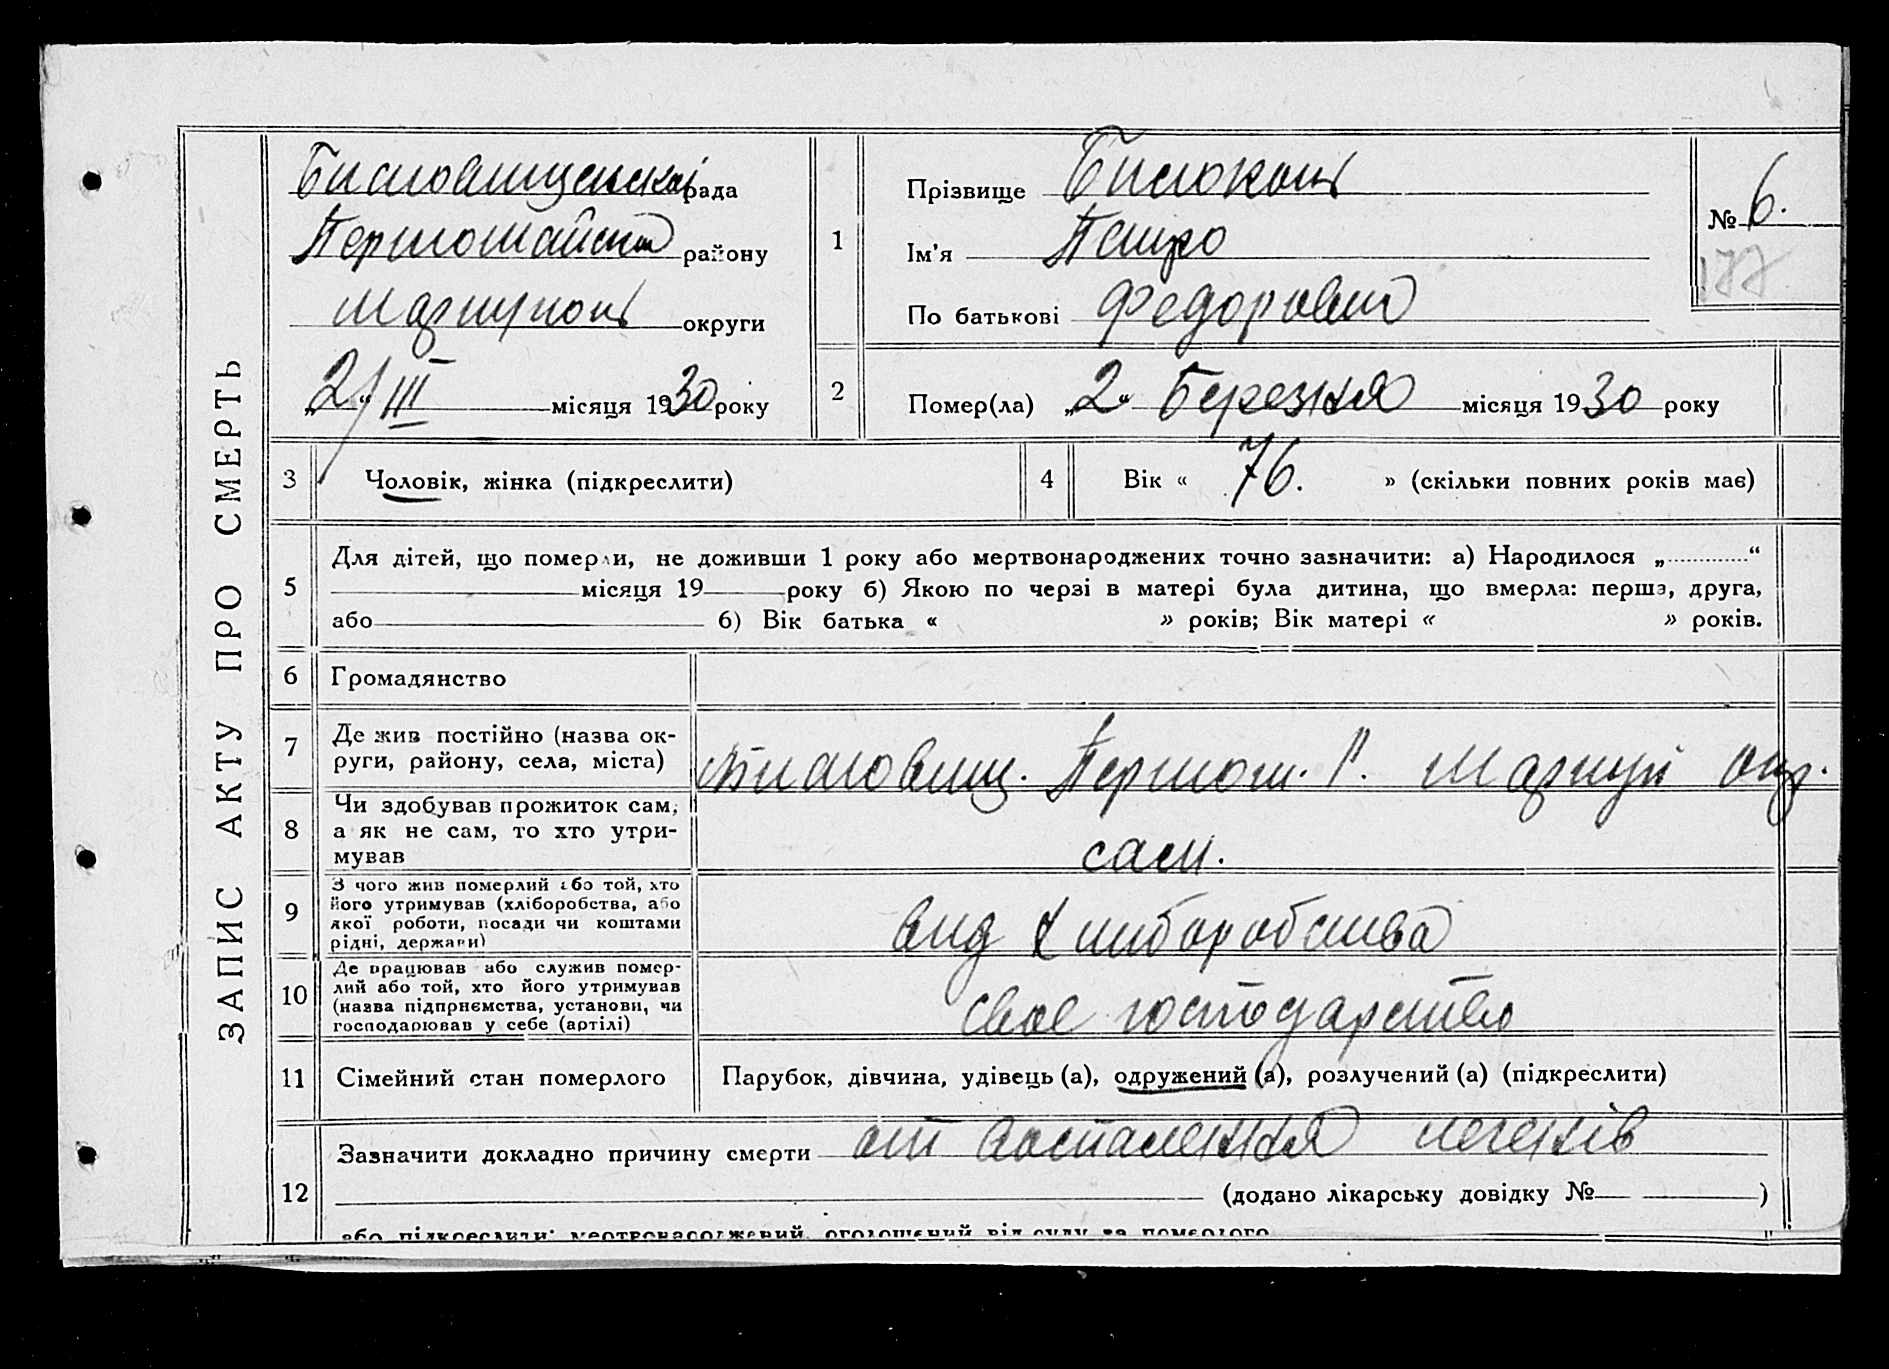 ЗАПИС АКТУ ПРО СМЕРТЬ
рада
Першотравн району
Маріупол округи
„2“ III місяця 1930 року
1
Прізвище Билоконь
Ім’я Петро
По батькові Федорович
№ 6.
177
2
Помер(ла) „2“ Березня місяця 1930 року
3 Чоловік, жінка (підкреслити)
4 Вік « 76. » (скільки повних років має)
5
Для дітей, що померли, не доживши 1 року або мертвонароджених точно зазначити: а) Народилося „ “
місяця 19 року б) Якою по черзі в матері була дитина, що вмерла: перша, друга,
або 6) Вік батька « » років; Вік матері « » років.
6 Громадянство
7 Де жив постійно (назва ок-
руги, району, села, міста)
Маріуп окр.
8 Чи здобував прожиток сам,
а як не сам, то хто утри-
мував
сам.
9 З чого жив померлий або той, хто
його утримував (хліборобства, або
якої роботи, посади чи коштами
рідні, держави)
вид хлиборобства
10 Де працював або служив помер-
лий або той, хто його утримував
(назва підприємства, установи, чи
господарював у себе (артілі)
свое господарство
11 Сімейний стан померлого
Парубок, дівчина, удівець (а), одружений (а), розлучений (а) (підкреслити)
12
Зазначити докладно причину смерти от воспалення легенів
(додано лікарську довідку № )
або підкреслити: мертвонароджений, оголошений від суду за померлого